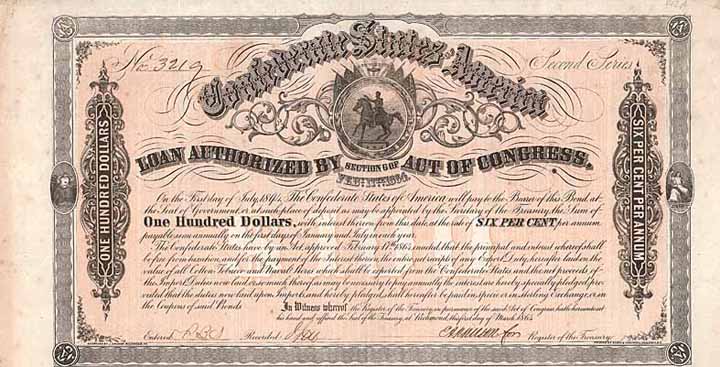 No. 3219
Second Series
Confederate States America
ONE HUNDRED DOLLARS
SIX PER CENT PER ANNUM
LOAN AUTHORIZED BY SECTION 6 OF ACT OF CONGRESS.
FEBY. 17TH 1864.
On the First day of July, 1894, The Confederate States of America will pay to the Bearer of this Bond, at
the Seat of Government, or at such place of deposit as may be appointed by the Secretary of the Treasury, the Sum of
One Hundred Dollars, with interest thereon from this date, at the rate of SIX PER CENT per annum
payable semi annually on the first days of January and July in each year.
The Confederate States have by an Act, approved February 17th 1864, enacted that the principal and interest whereof shall
be free from taxation, and for the payment of the Interest thereon, the entire net receipts of any Export Duty, hereafter laid on the
value of all Cotton, Tobacco and Naval Stores which shall be exported from the Confederate States and the net proceeds of
the Import Duties now laid, or so much thereof as may be necessary to pay annually the interest are hereby specially pledged: pro
vided that the duties now laid upon Imports, and hereby pledged, shall hereafter be paid in specie or in sterling Exchange, or in
the Coupons of said Bonds
In Witness whereof the Register of the Treasury, in pursuance of the said Act of Congress, hath hereunto set
his hand and affixed the Seal of the Treasury, at Richmond, this first day of March 1864.
Entered Recorded Register of the Treasury